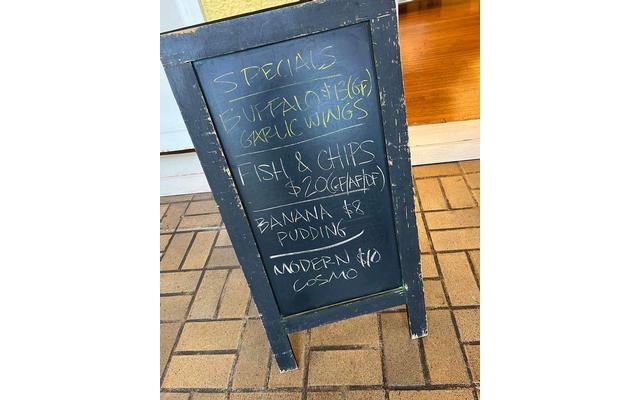 SPECIALS
BUFFALO $13(GF)
GARLIC WINGS
FISH & CHIPS
$20(GF/AF/DF)
BANANA $8
PUDDING
MODERN $10
COSMO